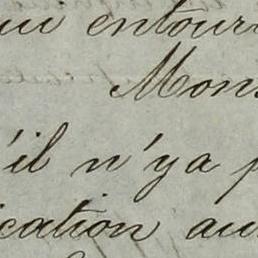 ui entour
Mons
'il n'y a p
ication au